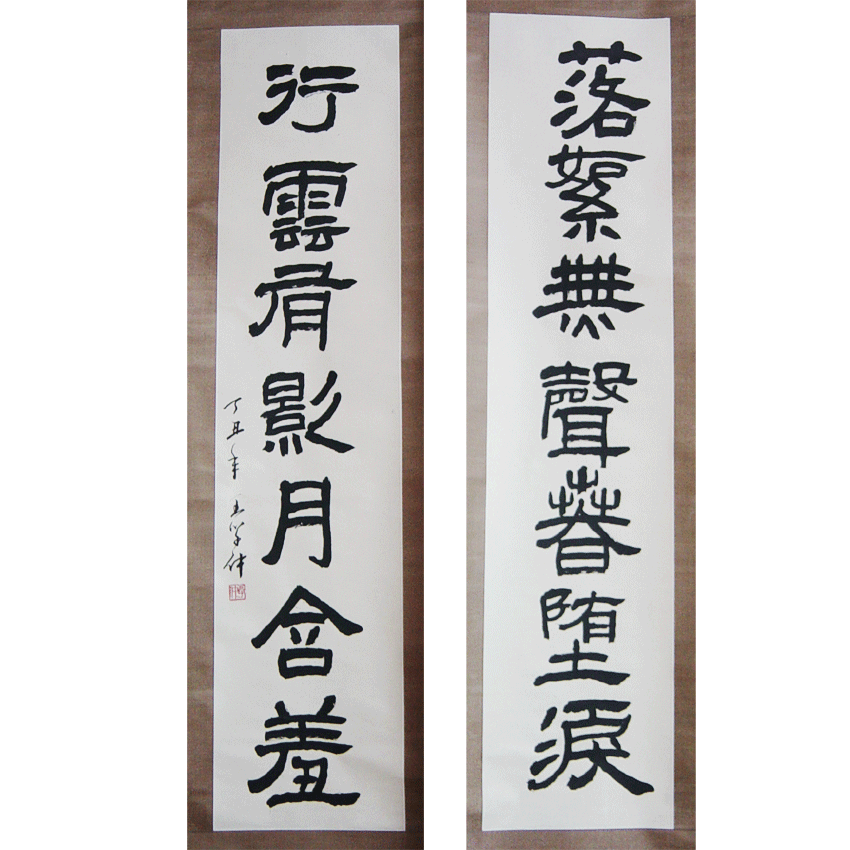 落絮無聲春堕淚
行雲有影月含羞
丁丑年 王学仲